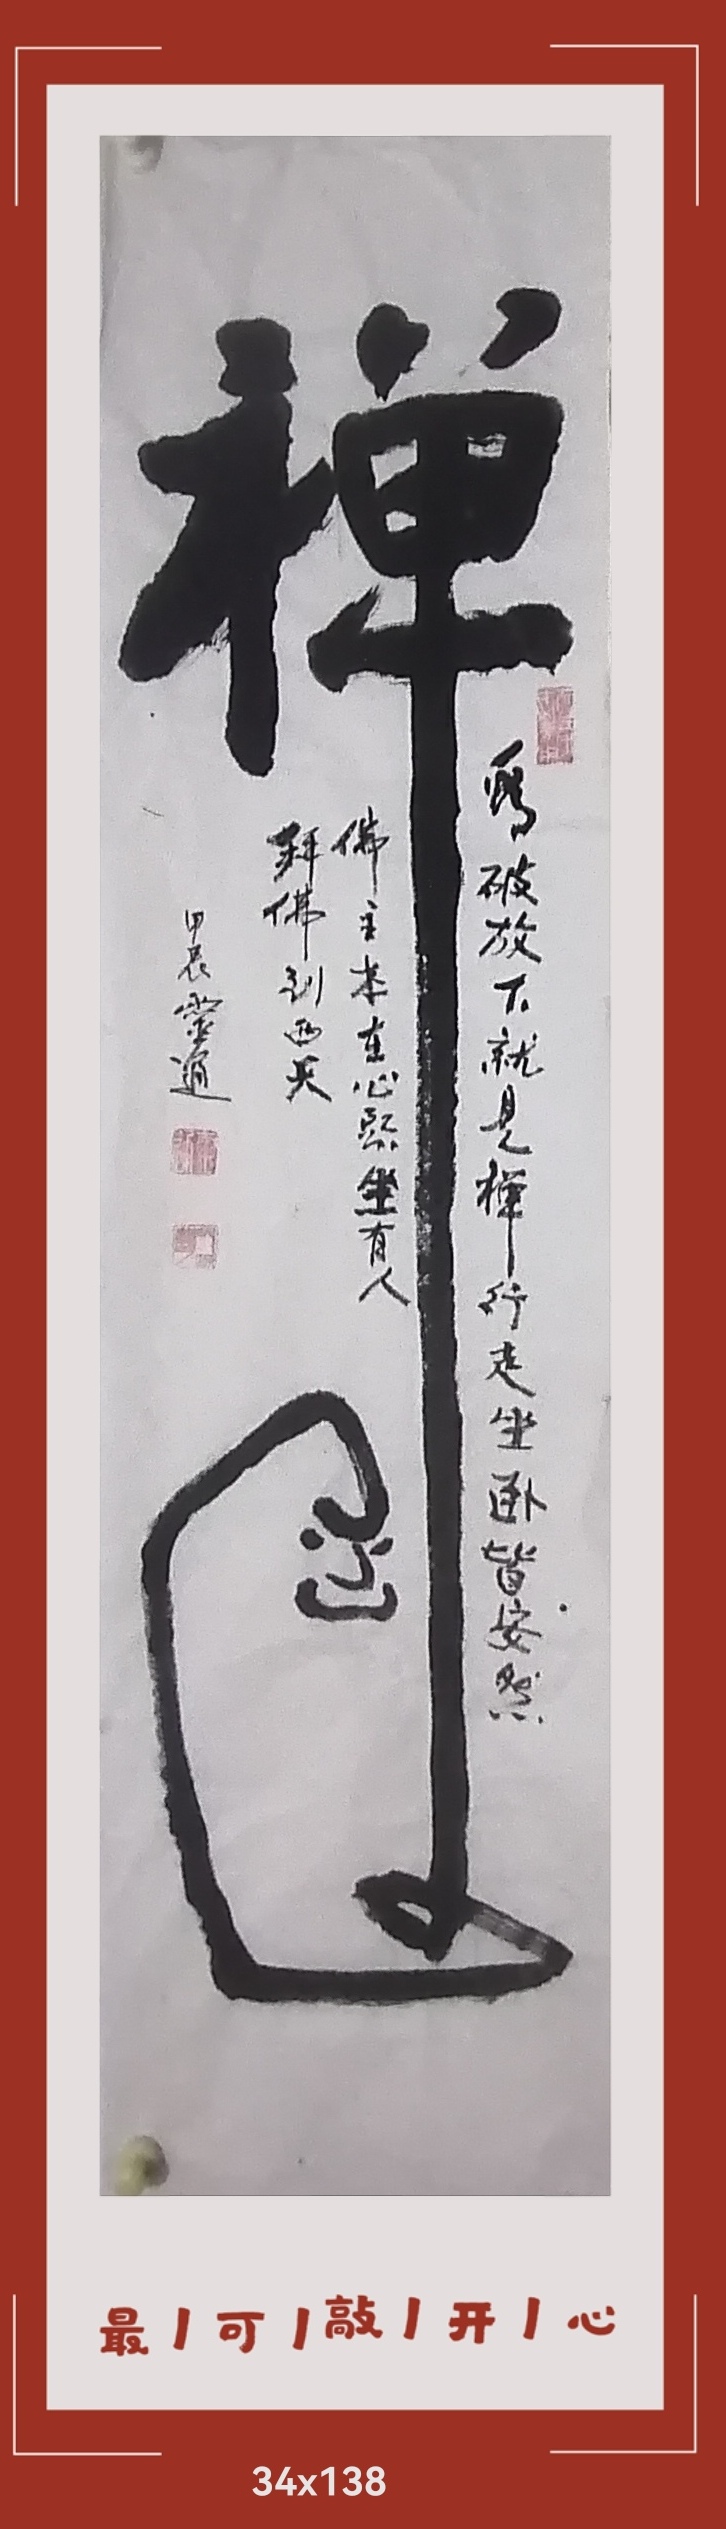 禅
破放下就是禅行走坐卧皆安然
佛主本在心
坐有人
拜佛到西天
甲辰
靈通
最|可|敲|开|心
34x138